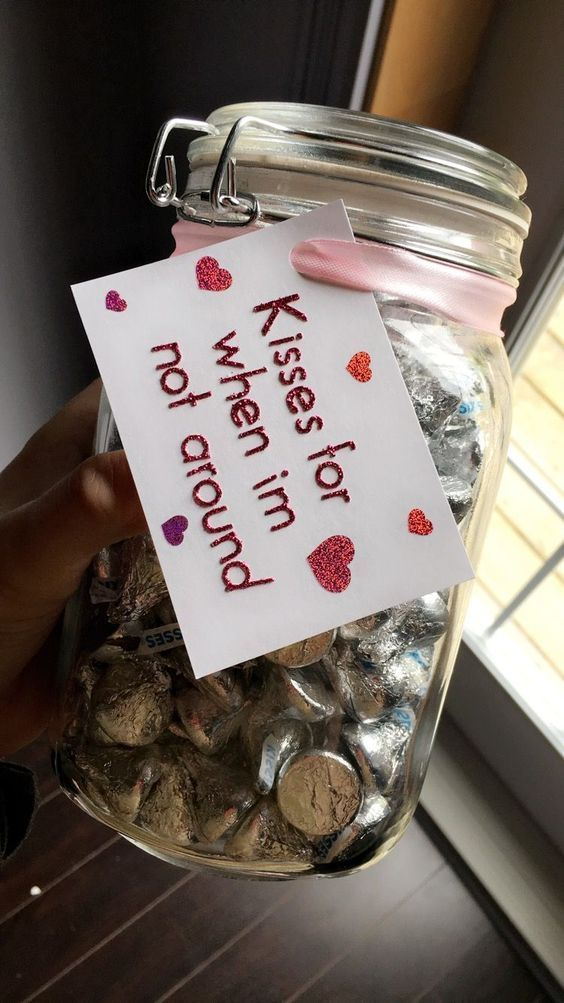 Kisses for
when im
not around
KISSES